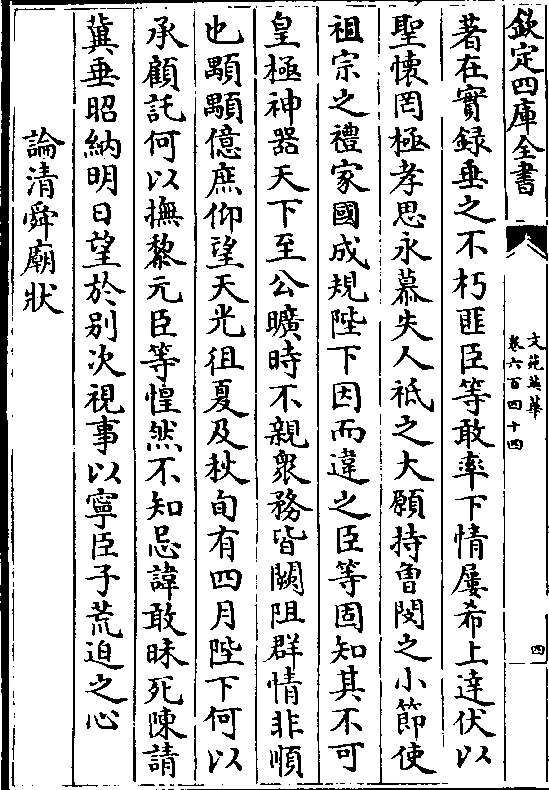 欽定四庫全書
文苑英華
卷六百四十四
四
著在實録垂之不朽匪臣等敢率下情屢希上達伏以
聖懷罔極孝思永慕失人祗之大願持曾閔之小節使
祖宗之禮家國成規陛下因而違之臣等固知其不可
皇極神器天下至公曠時不親衆務皆闕阻群情非順
也顒顒億庶仰望天光徂夏及秋旬有四月陛下何以
承顧託何以撫黎元臣等惶然不知忌諱敢昧死陳請
冀垂昭納明日望於别次視事以寧臣子荒迫之心
論清舜廟狀